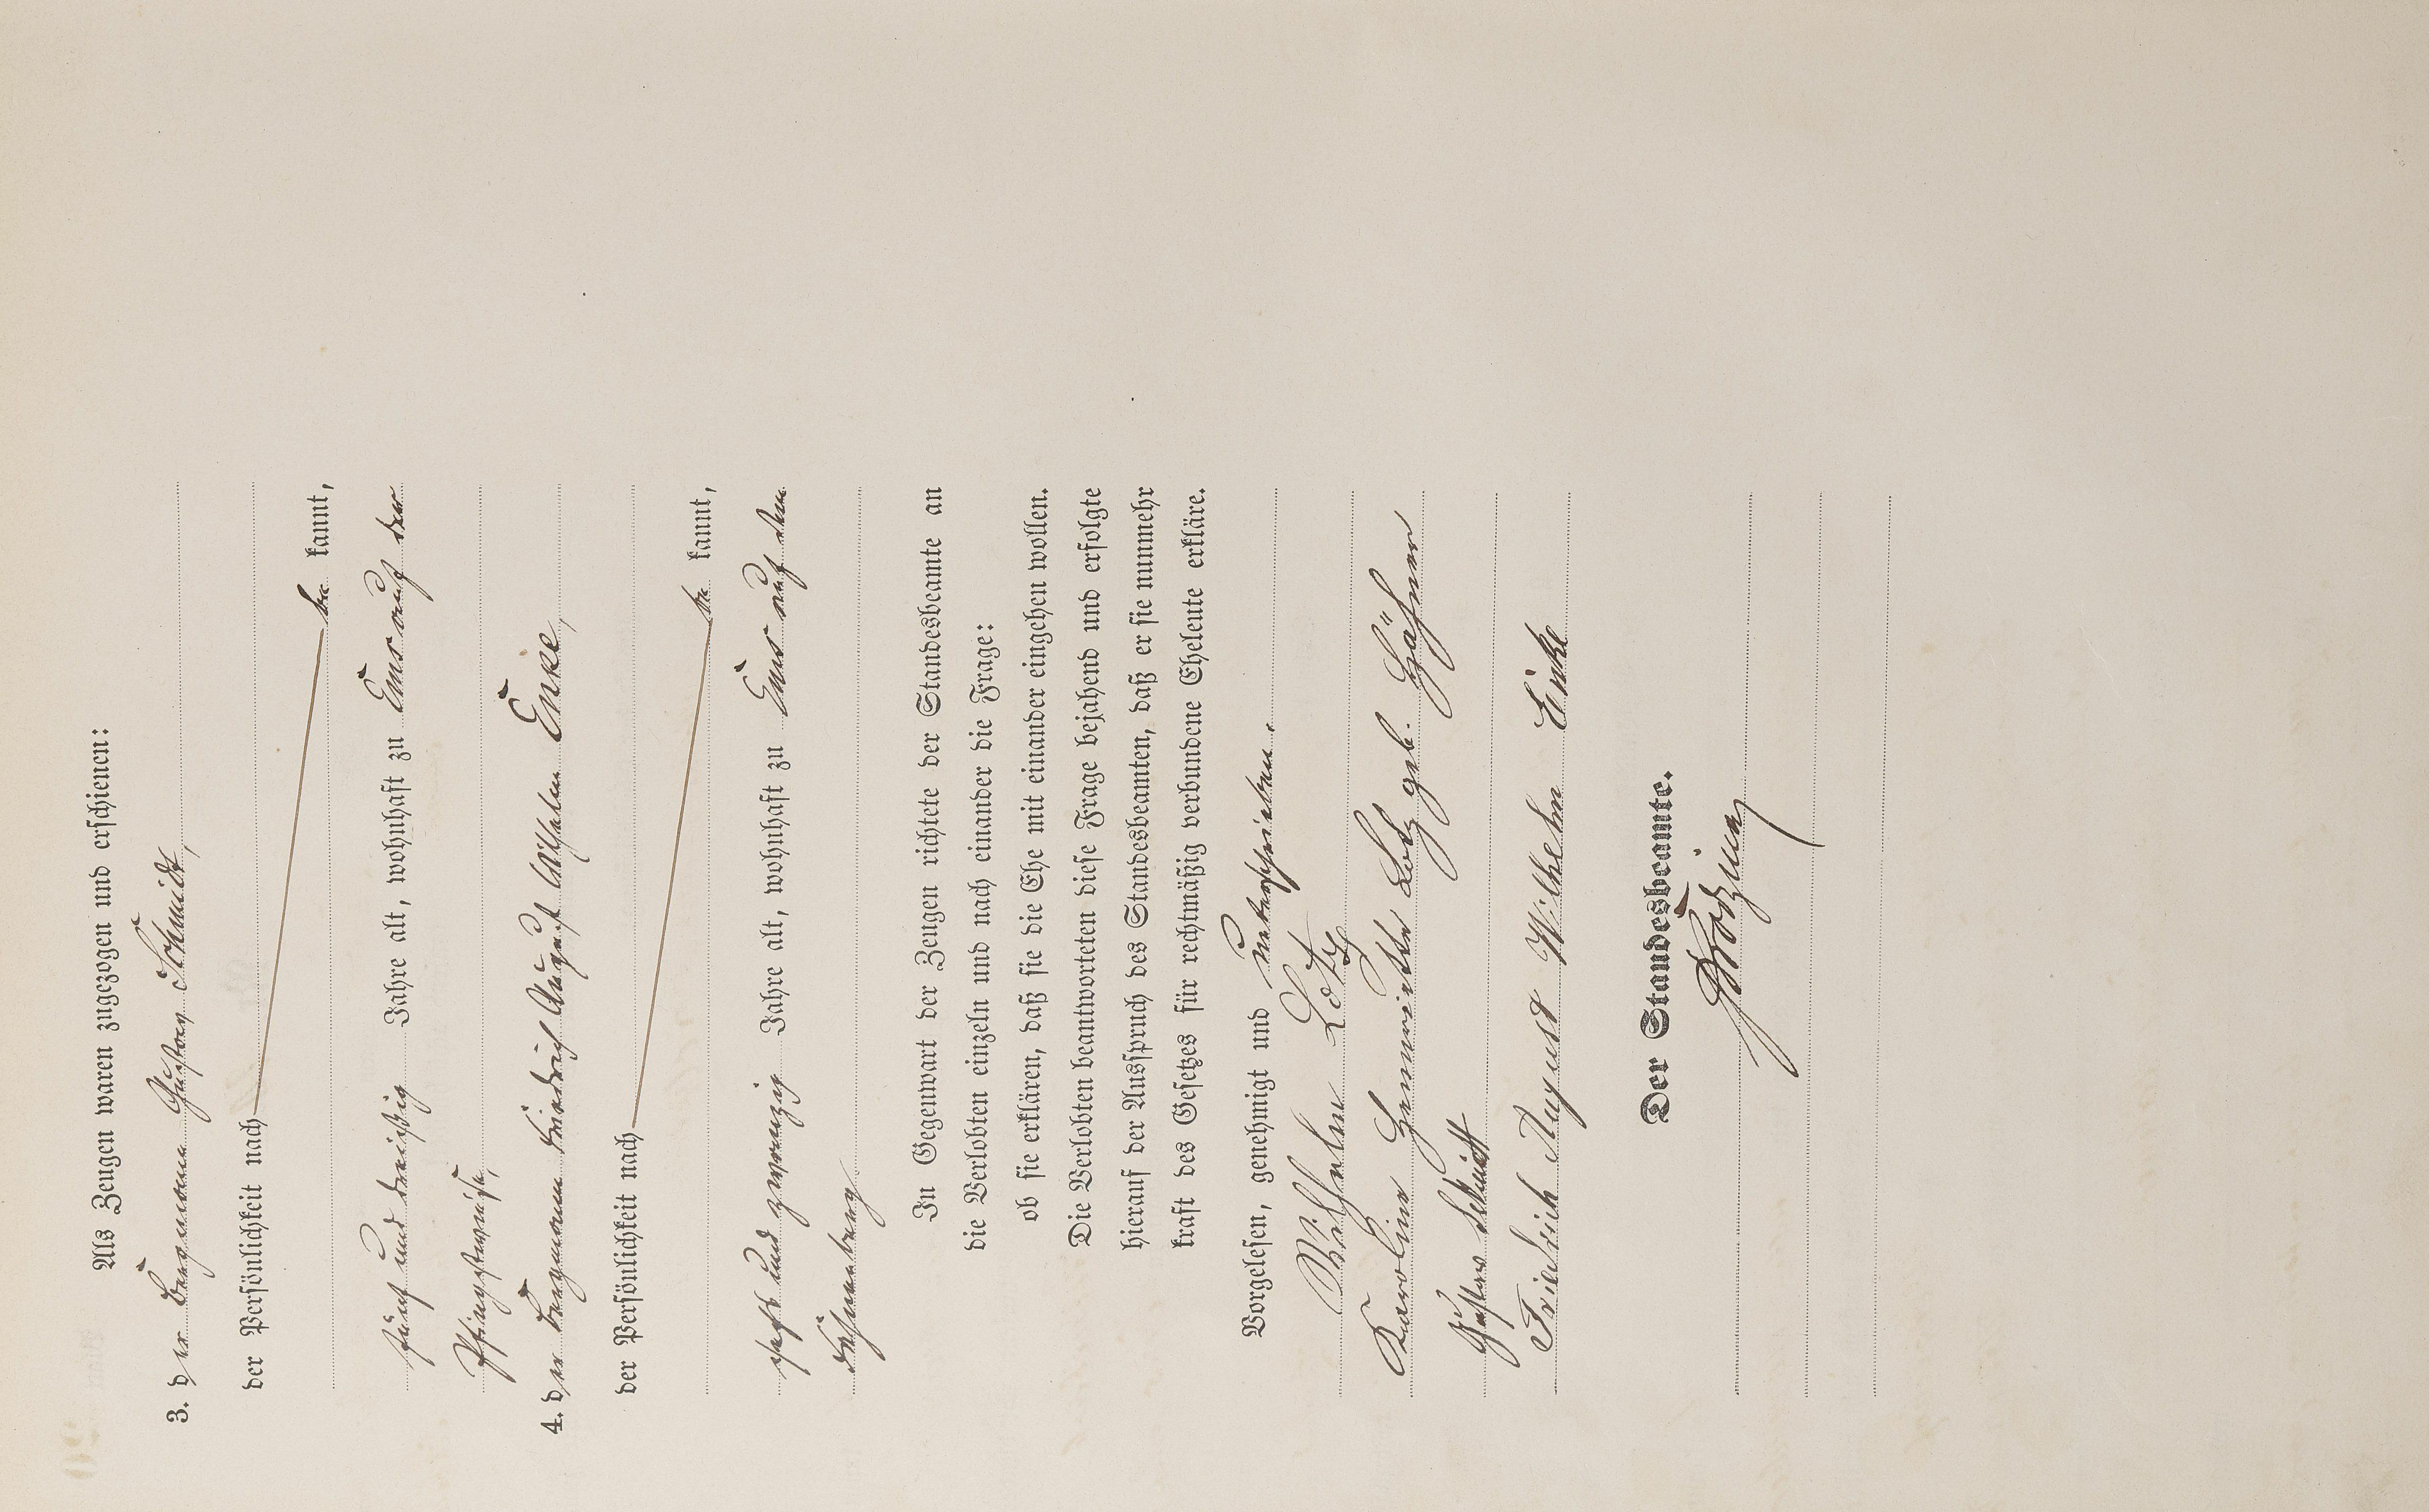 Als Zeugen waren zugezogen und erschienen:
3. der Bergmann Gustav Schmidt,
der Persönlichkeit nach
be kannt,
fünf und dreißig Jahre alt, wohnhaft zu Ems auf der
Pfingstwiese,
4. der Bergmann Friedrich August Wilhelm Einke,
der Persönlichkeit nach
be kannt,
sechs und zwanzig Jahre alt, wohnhaft zu Ems auf dem
In Gegenwart der Zeugen richtete der Standesbeamte an
die Verlobten einzeln und nach einander die Frage:
ob sie erklären, daß sie die Ehe mit einander eingehen wollen.
Die Verlobten beantworteten diese Frage bejahend und erfolgte
hierauf der Ausspruch des Standesbeamten, daß er sie nunmehr
kraft des Gesetzes für rechtmäßig verbundene Eheleute erkläre.
Vorgelesen, genehmigt und unterschrieben.
Wilhelm Lotz
Karoline Henriette Lotz geb. Häfner
Gustav Schmidt
Friedrich August Wilhelm Einke
Der Standesbeamte.